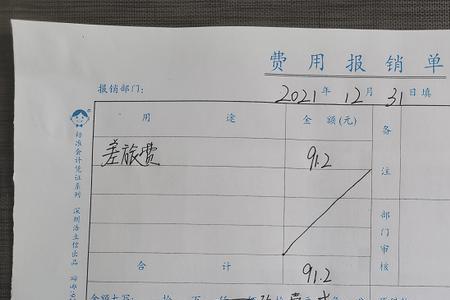 费用报销单
报销部门:
2021年12月31日填
用途 金额(元) 备注
差旅费 91.2
部门审核
合计 91.2
标准会计凭证系列 深圳浩立信出品
金额大写: 拾 万